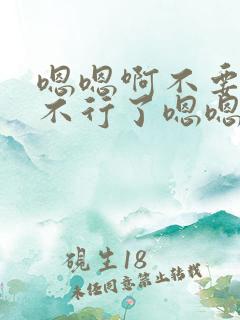 嗯嗯啊不要
不行了嗯嗯
砚生18
未经同意禁止转载